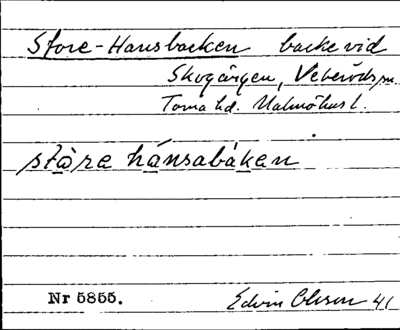 Store-Hansbacken backe vid
Skogängen, Veberöds sn.
Torna hd. Malmöhus l.
ståre hánsabáken
Nr 5855. Edvin Olsson 41